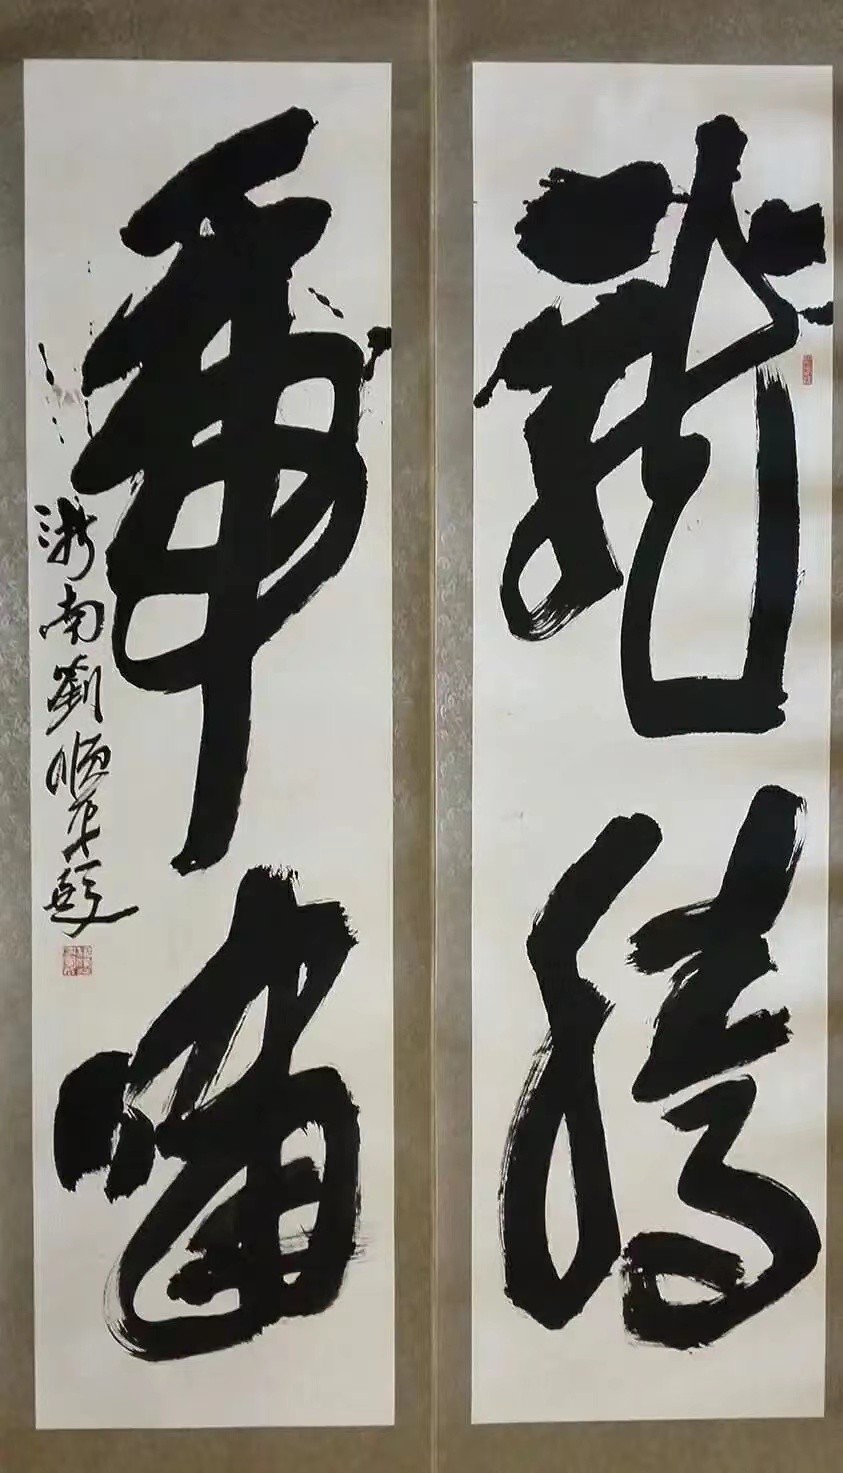 龍騰
虎嘯
浙南劉順平題